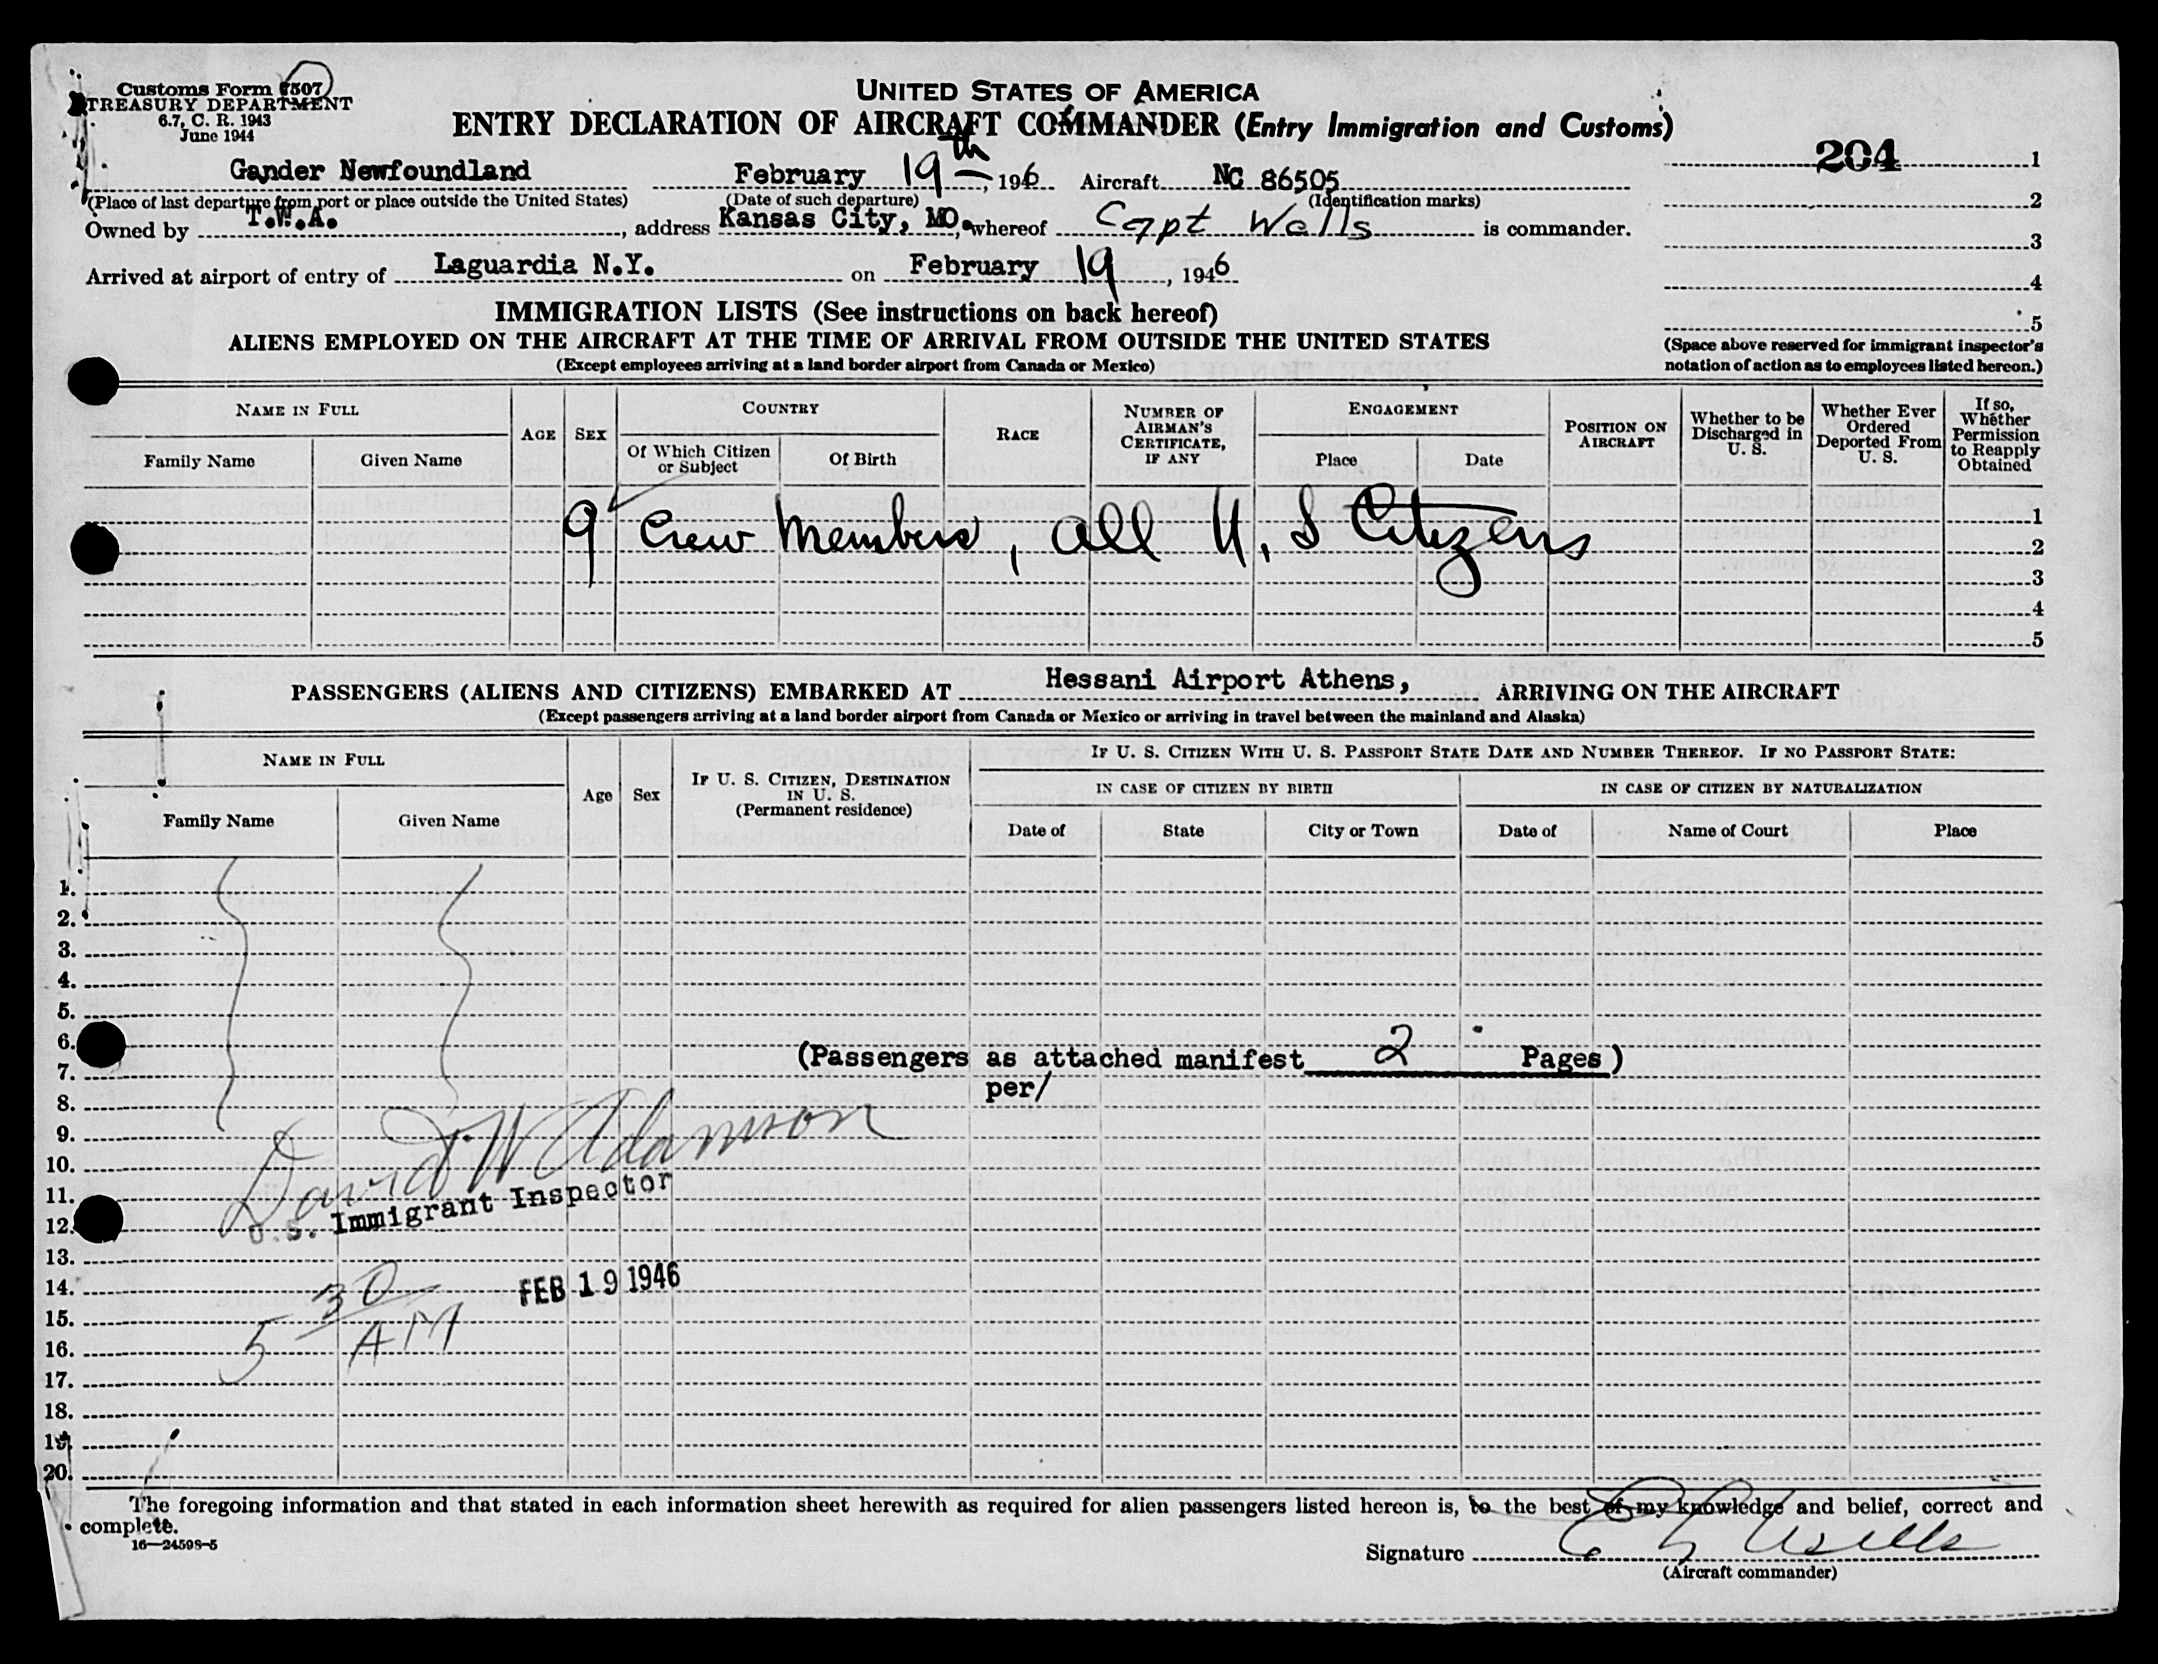 Customs Form 7507
TREASURY DEPARTMENT
6.7, C. R. 1943
June 1944
UNITED STATES OF AMERICA
ENTRY DECLARATION OF AIRCRAFT COMMANDER (Entry Immigration and Customs)
204 1
Gander Newfoundland February 19th, 1946 Aircraft NC 86505
(Place of last departure from port or place outside the United States) (Date of such departure) (Identification marks)
2
Owned by T.W.A., address Kansas City, MO., whereof Capt Wells is commander.
3
Arrived at airport of entry of Laguardia N.Y. on February 19, 1946
4
IMMIGRATION LISTS (See instructions on back hereof)
5
ALIENS EMPLOYED ON THE AIRCRAFT AT THE TIME OF ARRIVAL FROM OUTSIDE THE UNITED STATES
(Except employees arriving at a land border airport from Canada or Mexico)
(Space above reserved for immigrant inspector's
notation of action as to employees listed hereon.)
NAME IN FULL
Family Name
Given Name
AGE
SEX
COUNTRY
Of Which Citizen
or Subject
Of Birth
RACE
NUMBER OF
AIRMAN'S
CERTIFICATE,
IF ANY
ENGAGEMENT
Place
Date
POSITION ON
AIRCRAFT
Whether to be
Discharged in
U. S.
Whether Ever
Ordered
Deported From
U. S.
If so,
Whether
Permission
to Reapply
Obtained
9 Crew Members, all U. S Citizens
1
2
3
4
5
PASSENGERS (ALIENS AND CITIZENS) EMBARKED AT Hessani Airport Athens, ARRIVING ON THE AIRCRAFT
(Except passengers arriving at a land border airport from Canada or Mexico or arriving in travel between the mainland and Alaska)
NAME IN FULL
Family Name
Given Name
Age
Sex
IF U. S. CITIZEN, DESTINATION
IN U. S.
(Permanent residence)
IF U. S. CITIZEN WITH U. S. PASSPORT STATE DATE AND NUMBER THEREOF. IF NO PASSPORT STATE:
IN CASE OF CITIZEN BY BIRTH
IN CASE OF CITIZEN BY NATURALIZATION
Date of
State
City or Town
Date of
Name of Court
Place
1.
2.
3.
4.
5.
6.
(Passengers as attached manifest 2 Pages)
7.
per/
8.
9.
David W Adamson
10.
11.
U.S. Immigrant Inspector
12.
13.
FEB 19 1946
14.
5 30 AM
15.
16.
17.
18.
19.
20.
The foregoing information and that stated in each information sheet herewith as required for alien passengers listed hereon is, to the best of my knowledge and belief, correct and
complete.
16—24598-5
Signature Wells
(Aircraft commander)